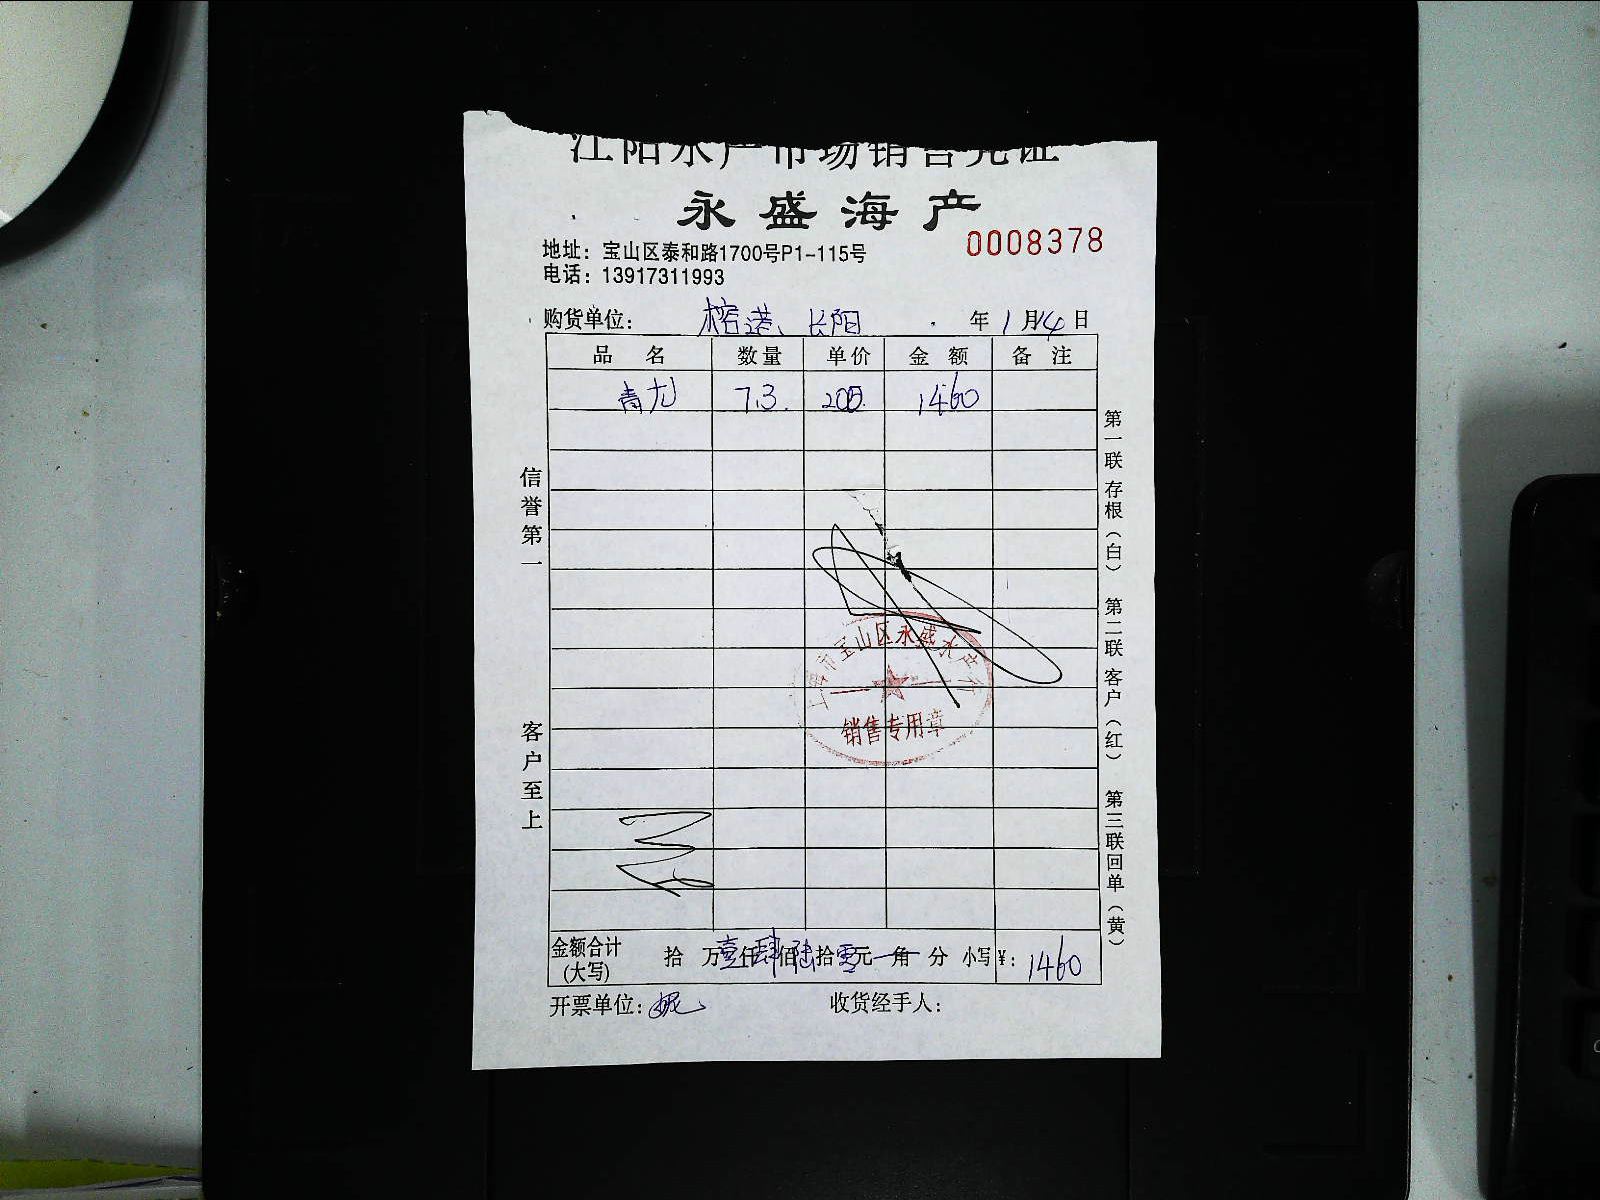 江阳水产市场销售凭证
永盛海产
0008378
地址：宝山区泰和路1700号P1-115号
电话：13917311993
购货单位：榕港、长阳 年 1 月 4 日
品名 数量 单价 金额 备注
青尤 7.3 200 1460
信誉第一
客户至上
第一联 存根（白） 第二联 客户（红） 第三联 回单（黄）
上海市宝山区永盛水产行
销售专用章
金额合计（大写） 拾 万 壹仟 肆佰 陆拾 零元 角 分 小写¥：1460
开票单位：
收货经手人：